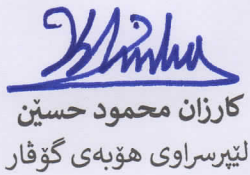 کارزان محمود حسێن
لێپرسراوی هۆبەی گۆڤار